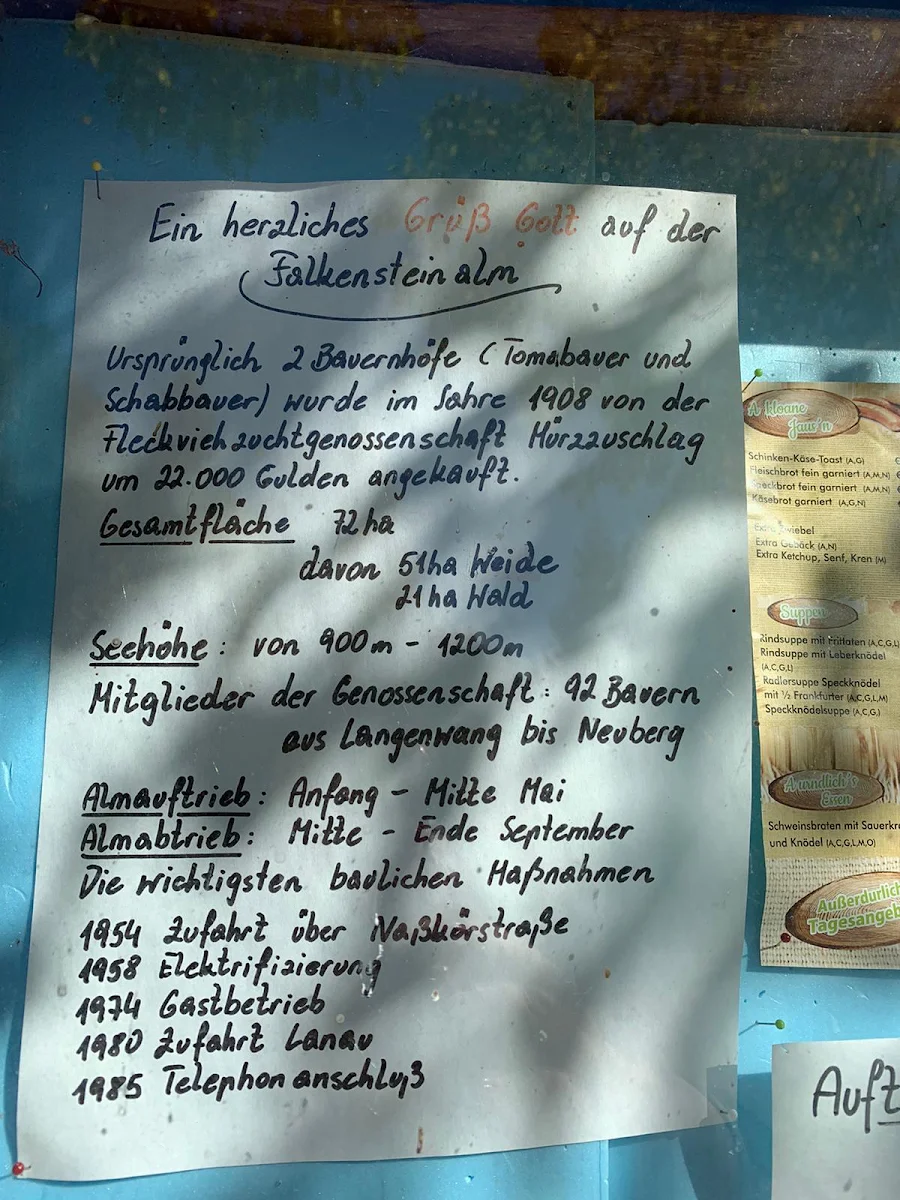 Ein herzliches Grüß Gott auf der
Falkensteinalm
Ursprünglich 2 Bauernhöfe (Tomabauer und
Schabbauer) wurde im Jahre 1908 von der
Fleckviehzuchtgenossenschaft Mürzzuschlag
um 22.000 Gulden angekauft.
Gesamtfläche 72ha
davon 51ha Weide
21ha Wald
Seehöhe: von 900m - 1200m
Mitglieder der Genossenschaft: 92 Bauern
aus Langenwang bis Neuberg
Almauftrieb: Anfang - Mitte Mai
Almabtrieb: Mitte - Ende September
Die wichtigsten baulichen Maßnahmen
1954 Zufahrt über Naßkörstraße
1958 Elektrifizierung
1974 Gastbetrieb
1980 Zufahrt Lanau
1985 Telephonanschluß
A kloane
Jaus'n
Schinken-Käse-Toast (A,G)
Fleischbrot fein garniert (A,M,N)
Speckbrot fein garniert (A,M,N)
Käsebrot garniert (A,G,N)
Extra Zwiebel
Extra Gebäck (A,N)
Extra Ketchup, Senf, Kren (M)
Suppen
Rindsuppe mit Frittaten (A,C,G,L)
Rindsuppe mit Leberknödel
(A,C,G,L)
Radlersuppe Speckknödel
mit ½ Frankfurter (A,C,G,L,M)
Speckknödelsuppe (A,C,G)
A urndlich's
Essen
Schweinsbraten mit Sauerkr
und Knödel (A,C,G,L,M,O)
Außerdurlich
Tagesangeb
Auft